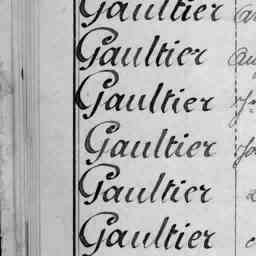 Gaultier
Gaultier
Gaultier
Gaultier
Gaultier
Gaultier